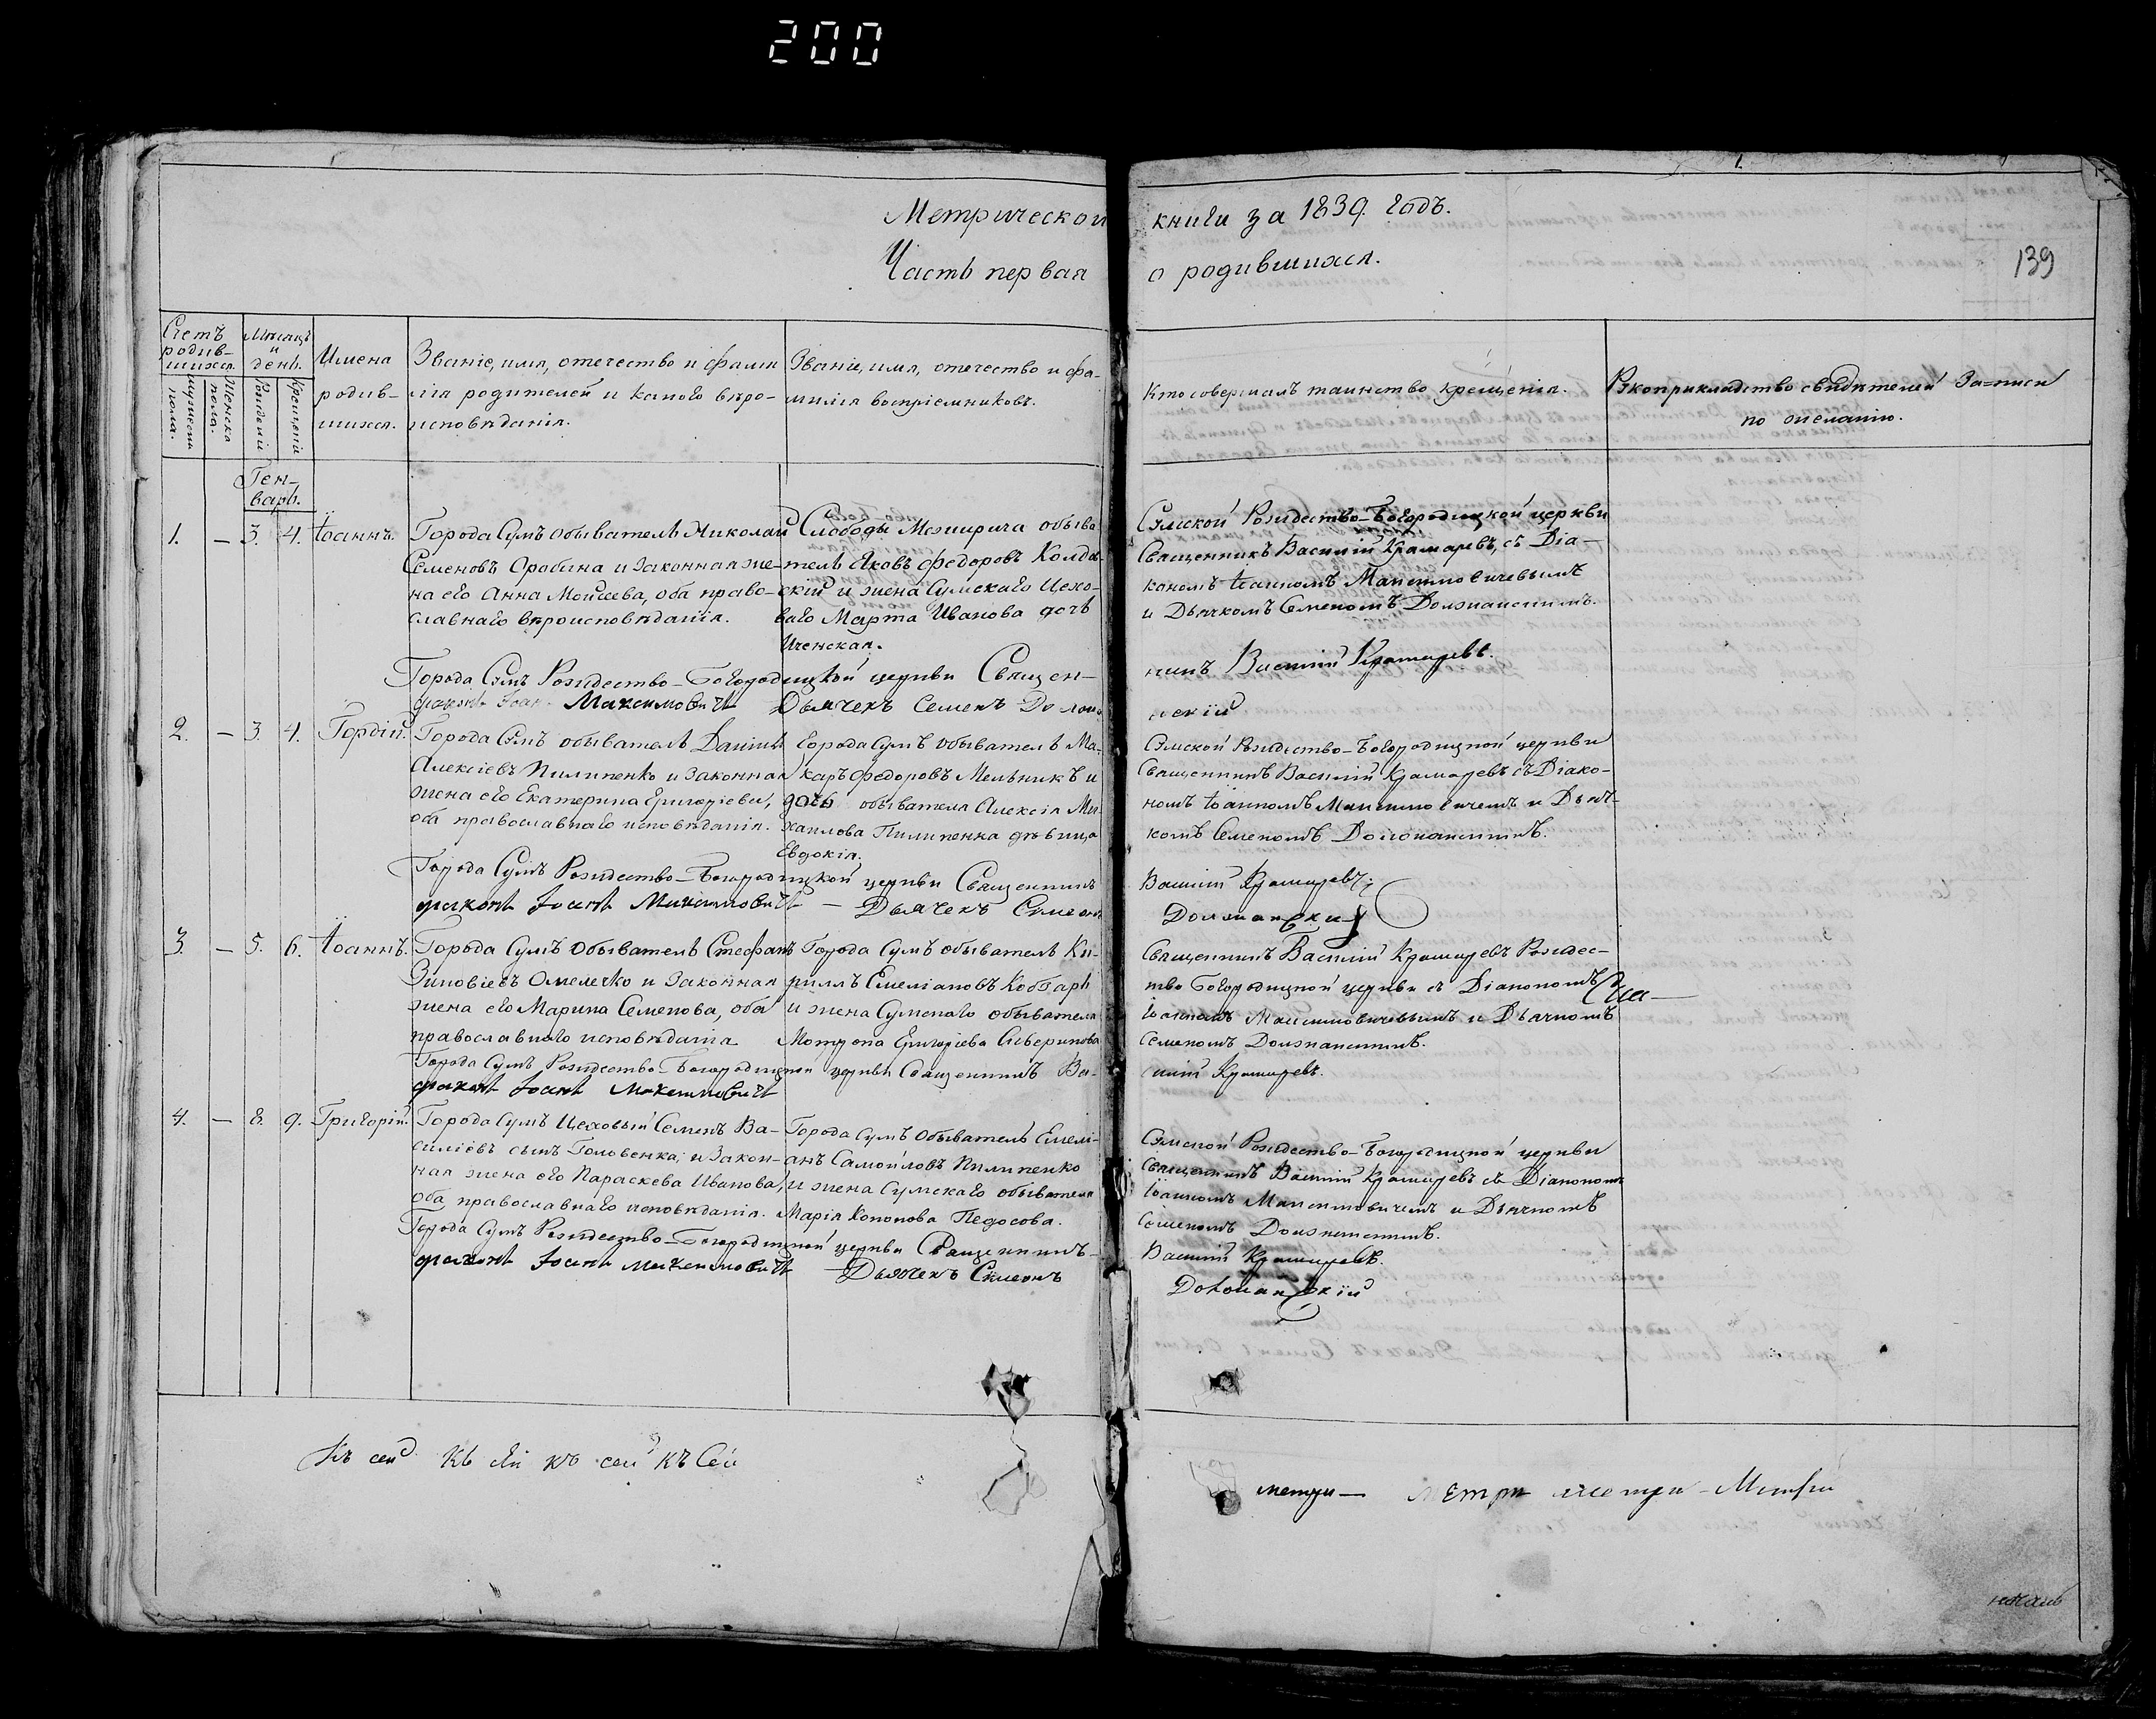 200
Метрической книги за 1839. годъ.
Часть первая о родившихся.
139
Счетъ родив-шихся.
мужеска пола.
Женска пола.
Мѣсяцъ и день.
Рожденія
Крещенія
Имена родив-шихся.
Званіе, имя, отечество и фами-
лія родителей и какого вѣро-
исповѣданія.
Званіе, имя, отечество и фа-
милія воспріемниковъ.
Кто совершалъ таинство крещенія.
Рукоприкладство свидѣтелей за=писи
по желанію.
Ген-
варь.
1. — 3. 4. Іоаннъ.
Города Сумъ обыватель Николай
Семеновъ Орабина и законная же-
на его Анна Моисеева, оба право-
славнаго вѣроисповѣданія.
Слободы Межирича обыва
тель Яковъ Федоровъ
скій и жена Сумскаго Цехо-
ваго Марта Иванова дочь
Сумской Рождество-Богородицкой церкви
Священникъ Василій Крамаревъ, съ Діа-
кономъ Іоанномъ Максимовичевымъ
и Дьячкомъ Семеномъ Должанскимъ.
Города Сумъ Рождество-Богородицкой церкви Священ-
никъ Василій Крамаревъ.
Максимовичъ Дьячекъ Семенъ
2. — 3. 4. Гордій.
Города Сумъ обыватель Даніилъ
Алексіевъ Пилипенко и законная
жена его Екатерина Григоріева,
оба православнаго исповѣданія.
Города Сумъ обыватель Ма-
каръ Федоровъ Мельникъ и
дочь обывателя Алексія Ми-
хаилова Пилипенка дѣвица
Евдокія.
Сумской Рождество-Богородицкой церкви
Священникъ Василій Крамаревъ съ Діако-
номъ Іоанномъ Максимовичемъ и Дьяч-
комъ Семеномъ Должанскимъ.
Города Сумъ Рождество-Богородицкой церкви Священникъ
Василій Крамаревъ;
діаконъ Іоанъ Максимовичъ — Дьячекъ Симеонъ
Должанскій
3. — 5. 6. Іоаннъ.
Города Сумъ обыватель Стефанъ
Зиновіевъ Омелечко и законная
жена его Марина Семенова, оба
православнаго исповѣданія
Города Сумъ обыватель Ки-
риллъ Емеліановъ Кобзарь
и жена Сумскаго обывателя
Мотрона Григоріева Сиверинова
Священникъ Василій Крамаревъ Рождес-
тво Богородицкой церкви съ Діакономъ
Іоанномъ Максимовичевымъ и Дьячкомъ
Семеномъ Должанскимъ.
Города Сумъ Рождество-Богородицкой церкви Священникъ Ва-
силій Крамаревъ.
діаконъ Іоанъ Максимовичъ
4. — 8. 9. Григорій.
Города Сумъ Цеховый Семенъ Ва-
силіевъ сынъ Головенка, и закон-
ная жена его Параскева Иванова,
оба православнаго исповѣданія.
Города Сумъ обыватель Емелі-
анъ Самойловъ Пилипенко
и жена Сумскаго обывателя
Марія Кононова Педосова.
Сумской Рождество-Богородицкой церкви
Священникъ Василій Крамаревъ съ Діакономъ
Іоанномъ Максимовичемъ и Дьячкомъ
Семеномъ Должанскимъ.
Города Сумъ Рождество-Богородицкой церкви Священникъ-
Василій Крамаревъ.
діаконъ Іоанъ Максимовичъ — Дьячекъ Симеонъ
Должанскій
Къ сей Къ сей къ сей къ Сей
метри — метри метри — Метри